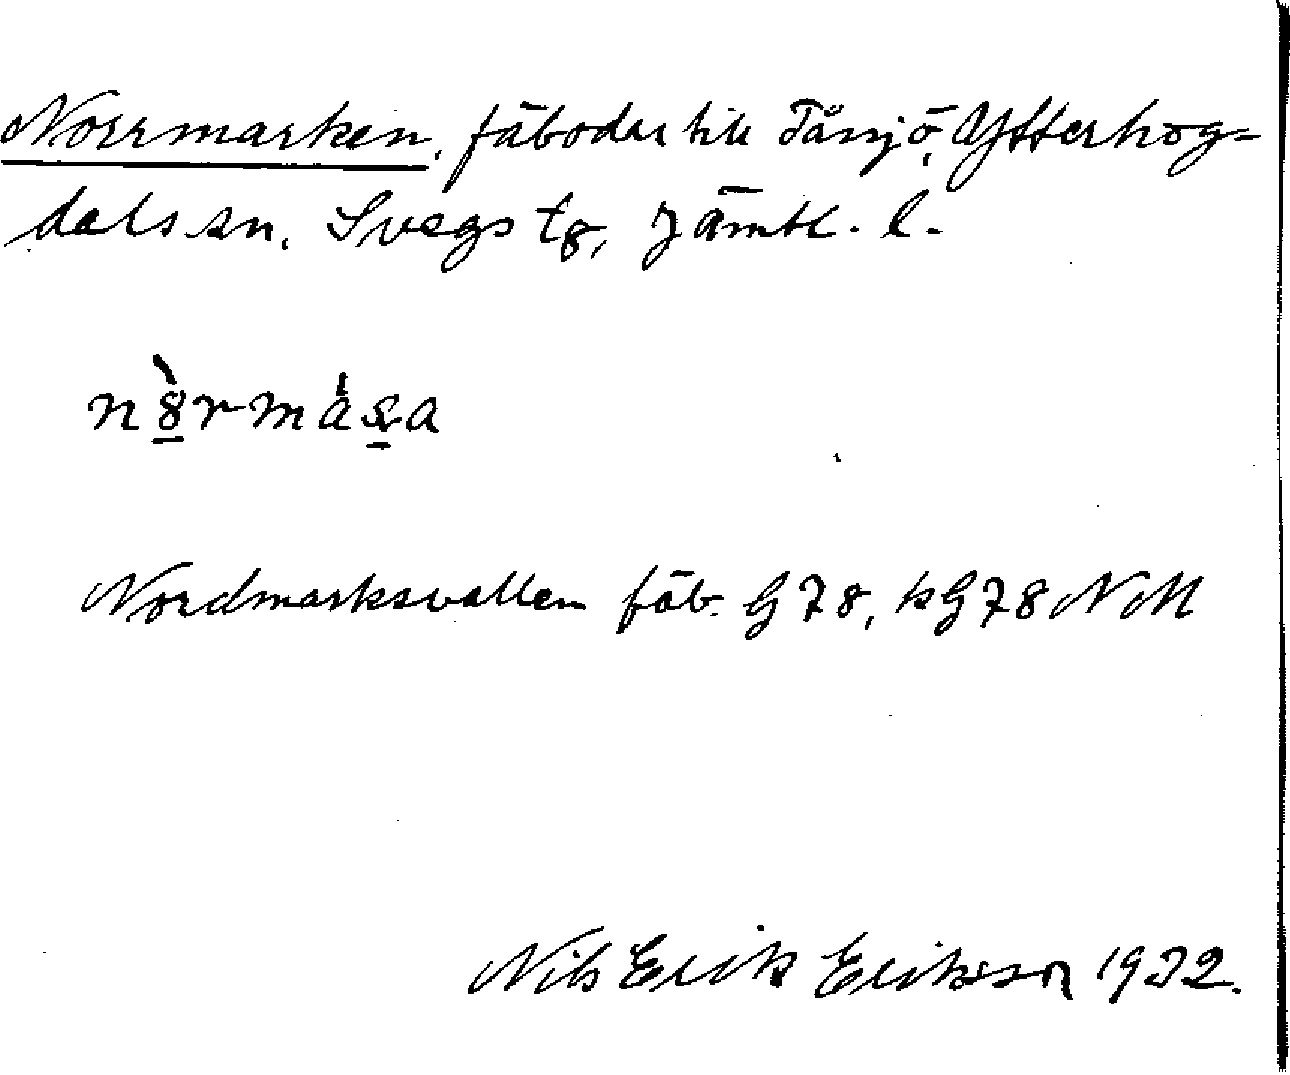 Norrmarken, fäbodar till Tånsjö, Ytterhog-
dals sn. Svegs tg, Jämtl. l.
Nordmarksvallen fäb. G 78, kG 78 NM
Nils Erik Eriksson 1932.